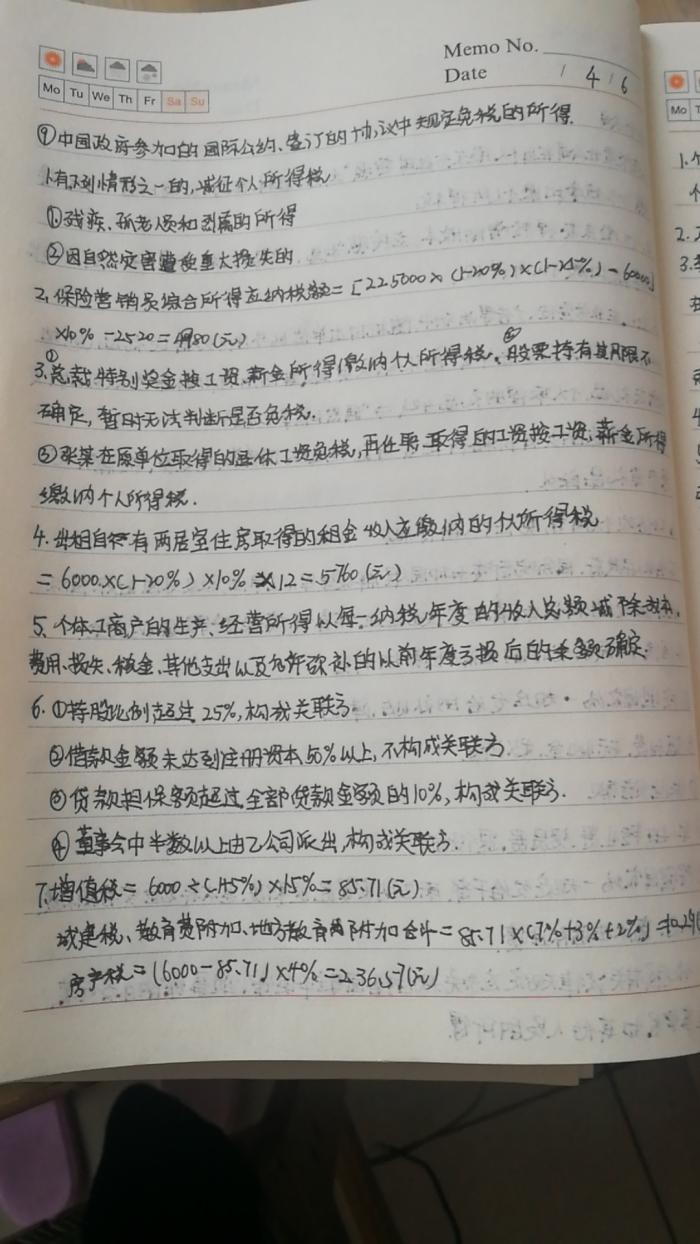 Memo No.
Date / 4 / 6
Mo Tu We Th Fr Sa Su
Mo
⑨中国政府参加的国际公约、签订的协议中规定免税的所得.
1.有下列情形之一的,减征个人所得税
①残疾、孤老人员和烈属的所得
②因自然灾害遭受重大损失的
2.保险营销员综合所得应纳税额=[225000×(1-20%)×(1-25%)-60000]
×10%-2520=4980(元)
3.①总裁特别奖金按工资、薪金所得缴纳个人所得税。②股票持有其期限不
确定,暂时无法判断是否免税.
③张某在原单位取得的退休工资免税,再任职取得的工资按工资、薪金所得
缴纳个人所得税.
4.出租自有两居室住房取得的租金收入应缴纳的个人所得税
=6000×(1-20%)×10%×12=5760(元)
5.个体工商户的生产、经营所得以每一纳税年度的收入总额减除成本、
费用、损失、税金、其他支出以及允许弥补的以前年度亏损后的余额确定.
6.①持股比例超过25%,构成关联方
②借款金额未达到注册资本50%以上,不构成关联方
③贷款担保额超过全部贷款金额的10%,构成关联方.
④董事会中半数以上由乙公司派出,构成关联方.
7.增值税=6000÷(1+5%)×1.5%=85.71(元)
城建税、教育费附加、地方教育附加合计=85.71×(7%+3%+2%)=10.29(
房产税=(6000-85.71)×4%=236.57(元)
1.
2.
3.